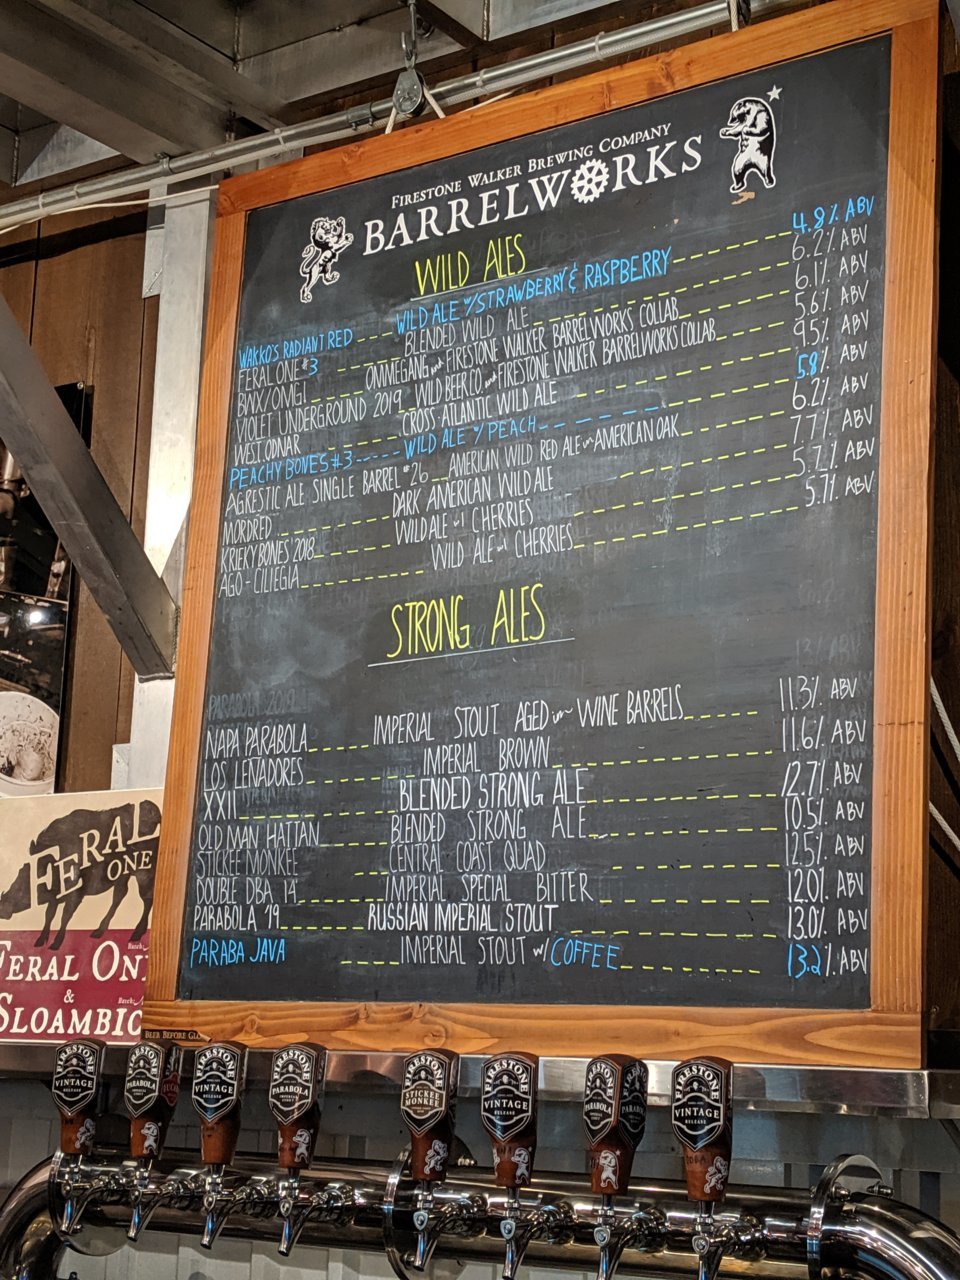 FIRESTONE WALKER BREWING COMPANY
BARRELWORKS
WILD ALES
WAKKO'S RADIANT RED WILD ALE W/ STRAWBERRY & RASPBERRY 4.8% ABV
FERAL ONE #3 BLENDED WILD ALE 6.2% ABV
BWX/OMG! OMMEGANG and FIRESTONE WALKER BARRELWORKS COLLAB 6.1% ABV
VIOLET UNDERGROUND 2019 WILD BEER CO and FIRESTONE WALKER BARRELWORKS COLLAB 5.6% ABV
WEST ODNAR CROSS ATLANTIC WILD ALE 9.5% ABV
PEACHY BONES #3 WILD ALE W/ PEACH 5.8% ABV
AGRESTIC ALE SINGLE BARREL #26 AMERICAN WILD RED ALE in AMERICAN OAK 6.2% ABV
MORDRED DARK AMERICAN WILD ALE 7.7% ABV
KRIEKY BONES 2018 WILD ALE w/ CHERRIES 5.7% ABV
AGO-CILIEGIA WILD ALE w/ CHERRIES 5.7% ABV
STRONG ALES
PARABOLA 2019 13% ABV
NAPA PARABOLA IMPERIAL STOUT AGED in WINE BARRELS 11.3% ABV
LOS LEÑADORES IMPERIAL BROWN 11.6% ABV
XXII BLENDED STRONG ALE 12.7% ABV
OLD MAN HATTAN BLENDED STRONG ALE 10.5% ABV
STICKEE MONKEE CENTRAL COAST QUAD 12.5% ABV
DOUBLE DBA 14 IMPERIAL SPECIAL BITTER 12.0% ABV
PARABOLA 19 RUSSIAN IMPERIAL STOUT 13.0% ABV
PARABA JAVA IMPERIAL STOUT W/ COFFEE 13.2% ABV
FERAL
ONE
FERAL ON
&
SLOAMBIC
BEER BEFORE GLO
FIRESTONE VINTAGE RELEASE
FIRESTONE PARABOLA
FIRESTONE VINTAGE RELEASE
FIRESTONE PARABOLA
FIRESTONE STICKEE MONKEE
FIRESTONE VINTAGE RELEASE
FIRESTONE PARABOLA
FIRESTONE VINTAGE RELEASE